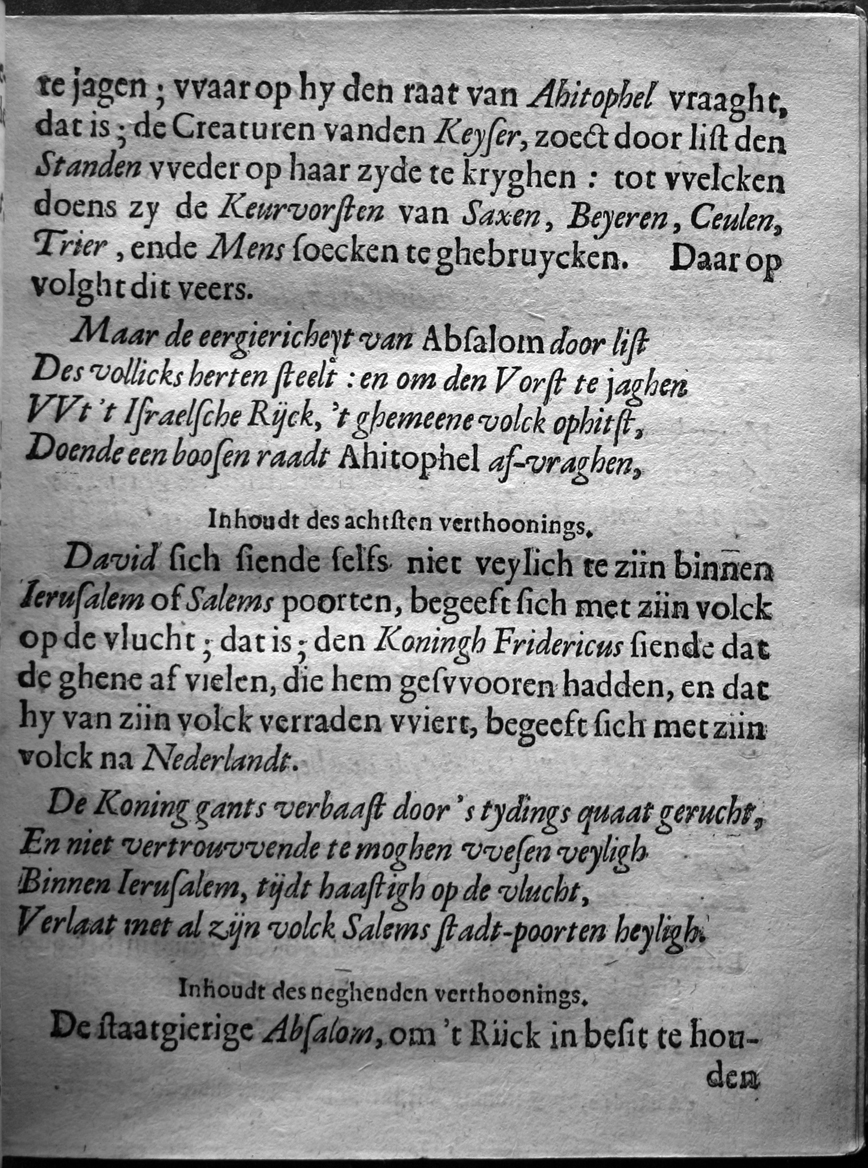 te jagen ; vvaar op hy den raat van Ahitophel vraaght,
dat is ; de Creaturen vanden Keyſer, zoect door liſt den
Standen vveder op haar zyde te kryghen : tot vvelcken
doens zy de Keurvorſten van Saxen, Beyeren, Ceulen,
Trier, ende Mens ſoecken te ghebruycken. Daar op
volght dit veers.
Maar de eergiericheyt van Abſalom door liſt
Des vollicks herten ſteelt : en om den Vorſt te jaghen
VVt 't Iſraelſche Rijck, 't ghemeene volck ophitſt,
Doende een booſen raadt Ahitophel af-vraghen,
Inhoudt des achtſten verthoonings.
David ſich ſiende ſelfs niet veylich te ziin binnen
Ieruſalem of Salems poorten, begeeft ſich met ziin volck
op de vlucht ; dat is ; den Koningh Fridericus ſiende dat
de ghene af vielen, die hem geſvvooren hadden, en dat
hy van ziin volck verraden vviert, begeeft ſich met ziin
volck na Nederlandt.
De Koning gants verbaaſt door 's tydings quaat gerucht,
En niet vertrouvvende te moghen vveſen veyligh
Binnen Ieruſalem, tijdt haaſtigh op de vlucht,
Verlaat met al zijn volck Salems ſtadt-poorten heyligh.
Inhoudt des neghenden verthoonings.
De ſtaatgierige Abſalom, om 't Riick in beſit te hou-
den